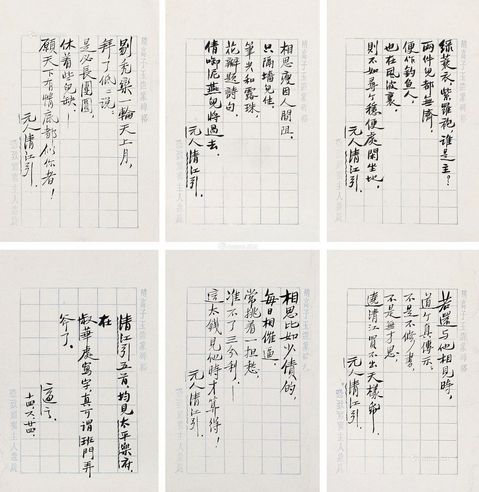 綠蓑衣，紫羅袍，誰是主？
兩件兒都無濟，
便作釣魚人，
也在風波裏，
則不如尋个穩便處閑坐地．
元人清江引．
相思瘦因人間阻，
只隔牆兒住．
筆尖和露珠，
花瓣題詩句，
倩啣泥燕兒將過去．
元人清江引．
剔禿圞一輪天上月，
拜了低低說：
是必長團圓，
休着些兒缺！
願天下有情底都似你者！
元人清江引．
若還與他相見時，
道个真傳示：
不是不修書，
不是無才思，
遶清江買不出天樣紙！
元人清江引．
相思比如少債的，
每日相催逼．
常挑着一担愁，
准不了三分利．
這本錢見他時才算得！
元人清江引．
清江引五首，均見太平樂府．
在
叔華處寫字，真可謂班門弄
斧了．
適之．
十四，六，廿四．